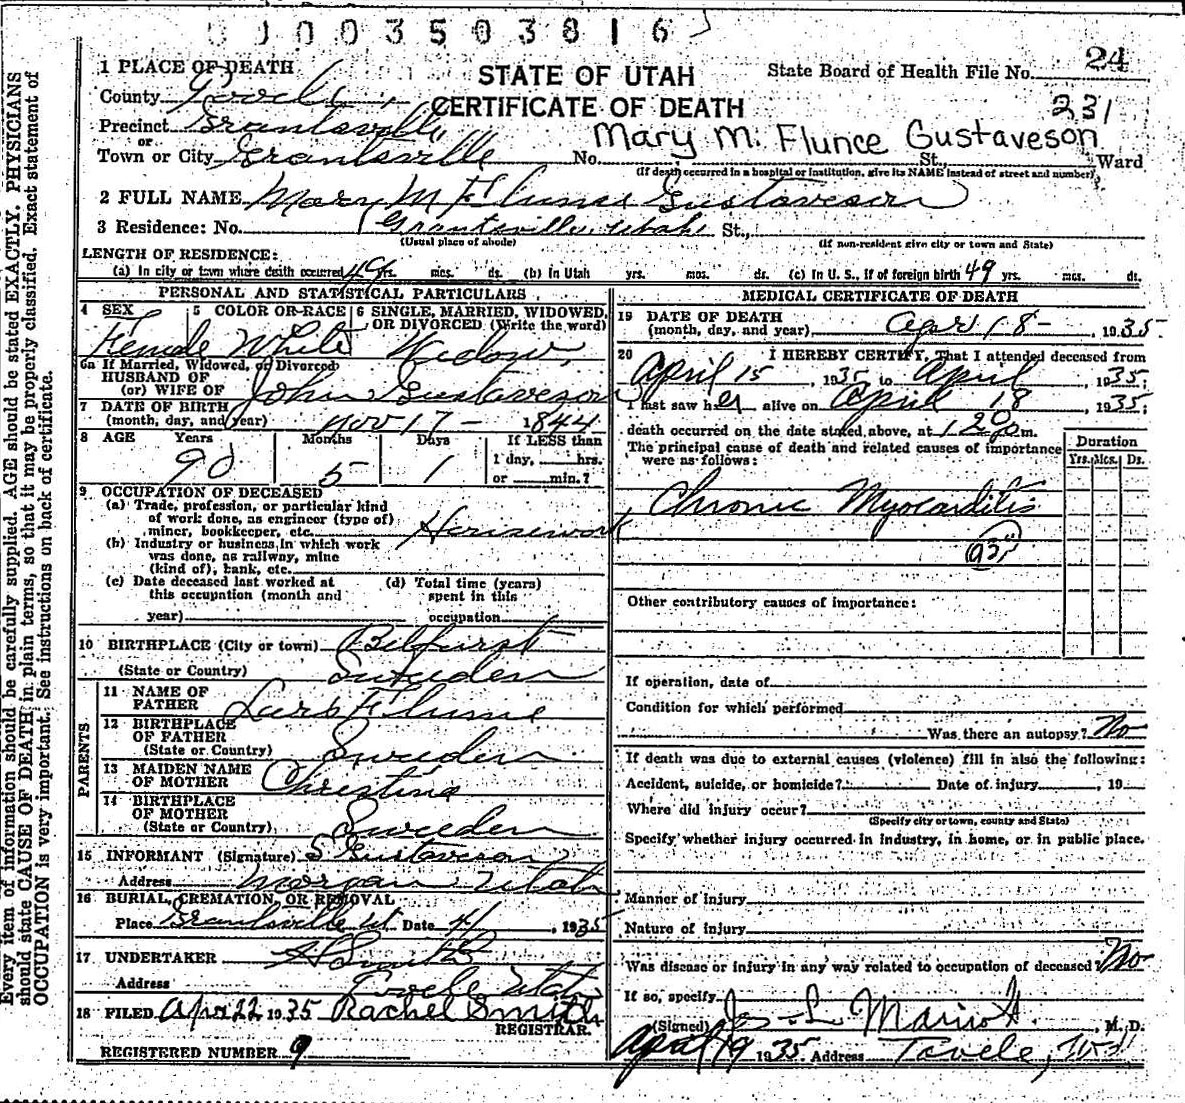 0003503816
24
1 PLACE OF DEATH
STATE OF UTAH
State Board of Health File No.
County Tooele
CERTIFICATE OF DEATH
231
Precinct Grantsville
Mary M. Flunce Gustaveson
or
Town or City Grantsville No. St., Ward
(If death occurred in a hospital or institution, give its NAME instead of street and number)
2 FULL NAME Mary M Flunce Gustaveson
3 Residence: No. Grantsville, Utah St.,
(Usual place of abode) (If non-resident give city or town and State)
LENGTH OF RESIDENCE:
(a) In city or town where death occurred 49 yrs. mos. ds. (b) In Utah yrs. mos. ds. (c) In U. S., if of foreign birth 49 yrs. mos. ds.
PERSONAL AND STATISTICAL PARTICULARS
4 SEX 5 COLOR OR RACE 6 SINGLE, MARRIED, WIDOWED, OR DIVORCED (Write the word)
Female White Widow
6a If Married, Widowed, or Divorced
HUSBAND OF
(or) WIFE OF John Gustaveson
7 DATE OF BIRTH
(month, day, and year) Nov 17 - 1844
8 AGE Years Months Days If LESS than
1 day, hrs.
90 5 1 or min.?
9 OCCUPATION OF DECEASED
(a) Trade, profession, or particular kind
of work done, as engineer (type of)
miner, bookkeeper, etc. Housework
(b) Industry or business in which work
was done, as railway, mine
(kind of), bank, etc.
(c) Date deceased last worked at
this occupation (month and
year)
(d) Total time (years)
spent in this
occupation
10 BIRTHPLACE (City or town)
(State or Country) Sweden
PARENTS
11 NAME OF
FATHER Lars Flunce
12 BIRTHPLACE
OF FATHER
(State or Country) Sweden
13 MAIDEN NAME
OF MOTHER Christina
14 BIRTHPLACE
OF MOTHER
(State or Country) Sweden
15 INFORMANT (Signature) S Gustaveson
Address Morgan Utah
16 BURIAL, CREMATION, OR REMOVAL
Place Grantsville Ut Date 4/ , 1935
17 UNDERTAKER A Smith
Address Tooele Utah
18 FILED Apr 22 1935 Rachel Smith
REGISTRAR.
REGISTERED NUMBER 9
MEDICAL CERTIFICATE OF DEATH
19 DATE OF DEATH
(month, day, and year) April 18 - , 1935
20 I HEREBY CERTIFY, That I attended deceased from
April 15 , 1935 to April , 1935;
I last saw her alive on April 18 , 1935;
death occurred on the date stated above, at 1 20 p m.
The principal cause of death and related causes of importance
were as follows:
Duration
Yrs. Mos. Ds.
Chronic Myocarditis
93
Other contributory causes of importance:
If operation, date of
Condition for which performed
Was there an autopsy? No
If death was due to external causes (violence) fill in also the following:
Accident, suicide, or homicide? Date of injury , 19
Where did injury occur?
(Specify city or town, county and State)
Specify whether injury occurred in industry, in home, or in public place.
Manner of injury
Nature of injury
Was disease or injury in any way related to occupation of deceased? No
If so, specify
(Signed) Jos. L. Mariott , M. D.
April 19 1935 Address Tooele, Utah
Every item of information should be carefully supplied. AGE should be stated EXACTLY. PHYSICIANS
should state CAUSE OF DEATH in plain terms, so that it may be properly classified. Exact statement of
OCCUPATION is very important. See instructions on back of certificate.